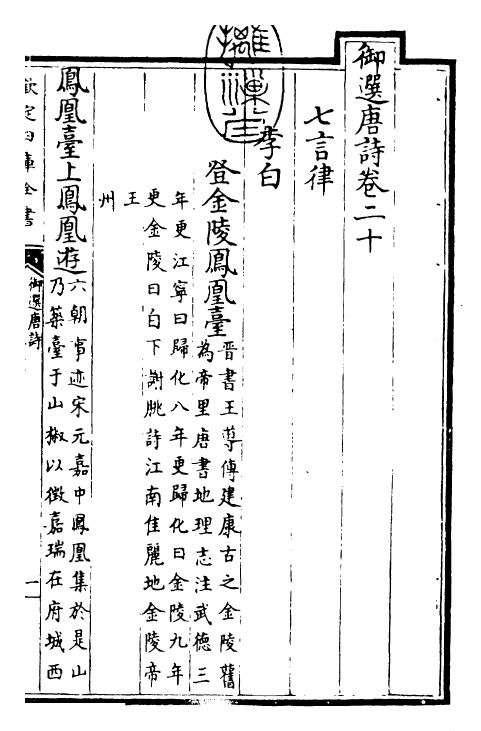 御選唐詩卷二十
七言律
李白
登金陵鳳凰臺
晉書王導傳建康古之金陵舊
為帝里唐書地理志注武德三
年更江寧曰歸化八年更歸化曰金陵九年
更金陵曰白下謝朓詩江南佳麗地金陵帝
王
州
鳳凰臺上鳳凰遊
六朝事迹宋元嘉中鳳凰集於是山
乃築臺于山椒以徵嘉瑞在府城西
欽定四庫全書
御選唐詩
一